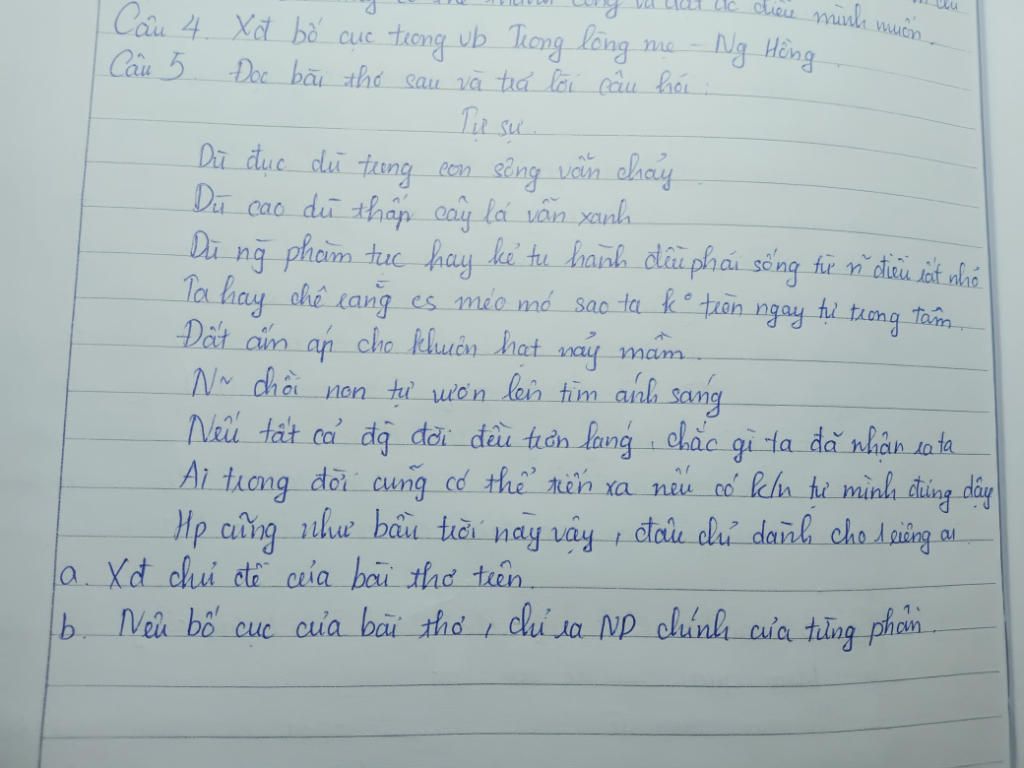 Câu 4. Xđ bố cục trong vb Trong lòng mẹ - Ng Hồng
Câu 5. Đọc bài thơ sau và trả lời câu hỏi:
Tự sự.
Dù đục dù trong con sông vẫn chảy.
Dù cao dù thấp cây lá vẫn xanh
Dù ng phàm tục hay kẻ tu hành đều phải sống từ n~ điều rất nhỏ
Ta hay chê rằng cs méo mó sao ta k° tròn ngay tự trong tâm.
Đất ấm áp cho khuôn hạt nảy mầm.
N~ chồi non tự vươn lên tìm ánh sáng
Nếu tất cả đg đời đều trơn láng, chắc gì ta đã nhận ra ta
Ai trong đời cũng có thể tiến xa nếu có k/n tự mình đứng dậy
Hp cũng như bầu trời này vậy, đâu chỉ dành cho 1 riêng ai.
a. Xđ chủ đề của bài thơ trên.
b. Nêu bố cục của bài thơ, chỉ ra ND chính của từng phần.